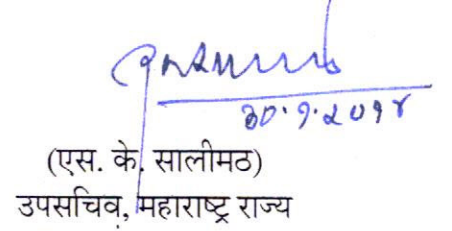 ३०.१.२०१४
(एस. के. सालीमठ)
उपसचिव, महाराष्ट्र राज्य